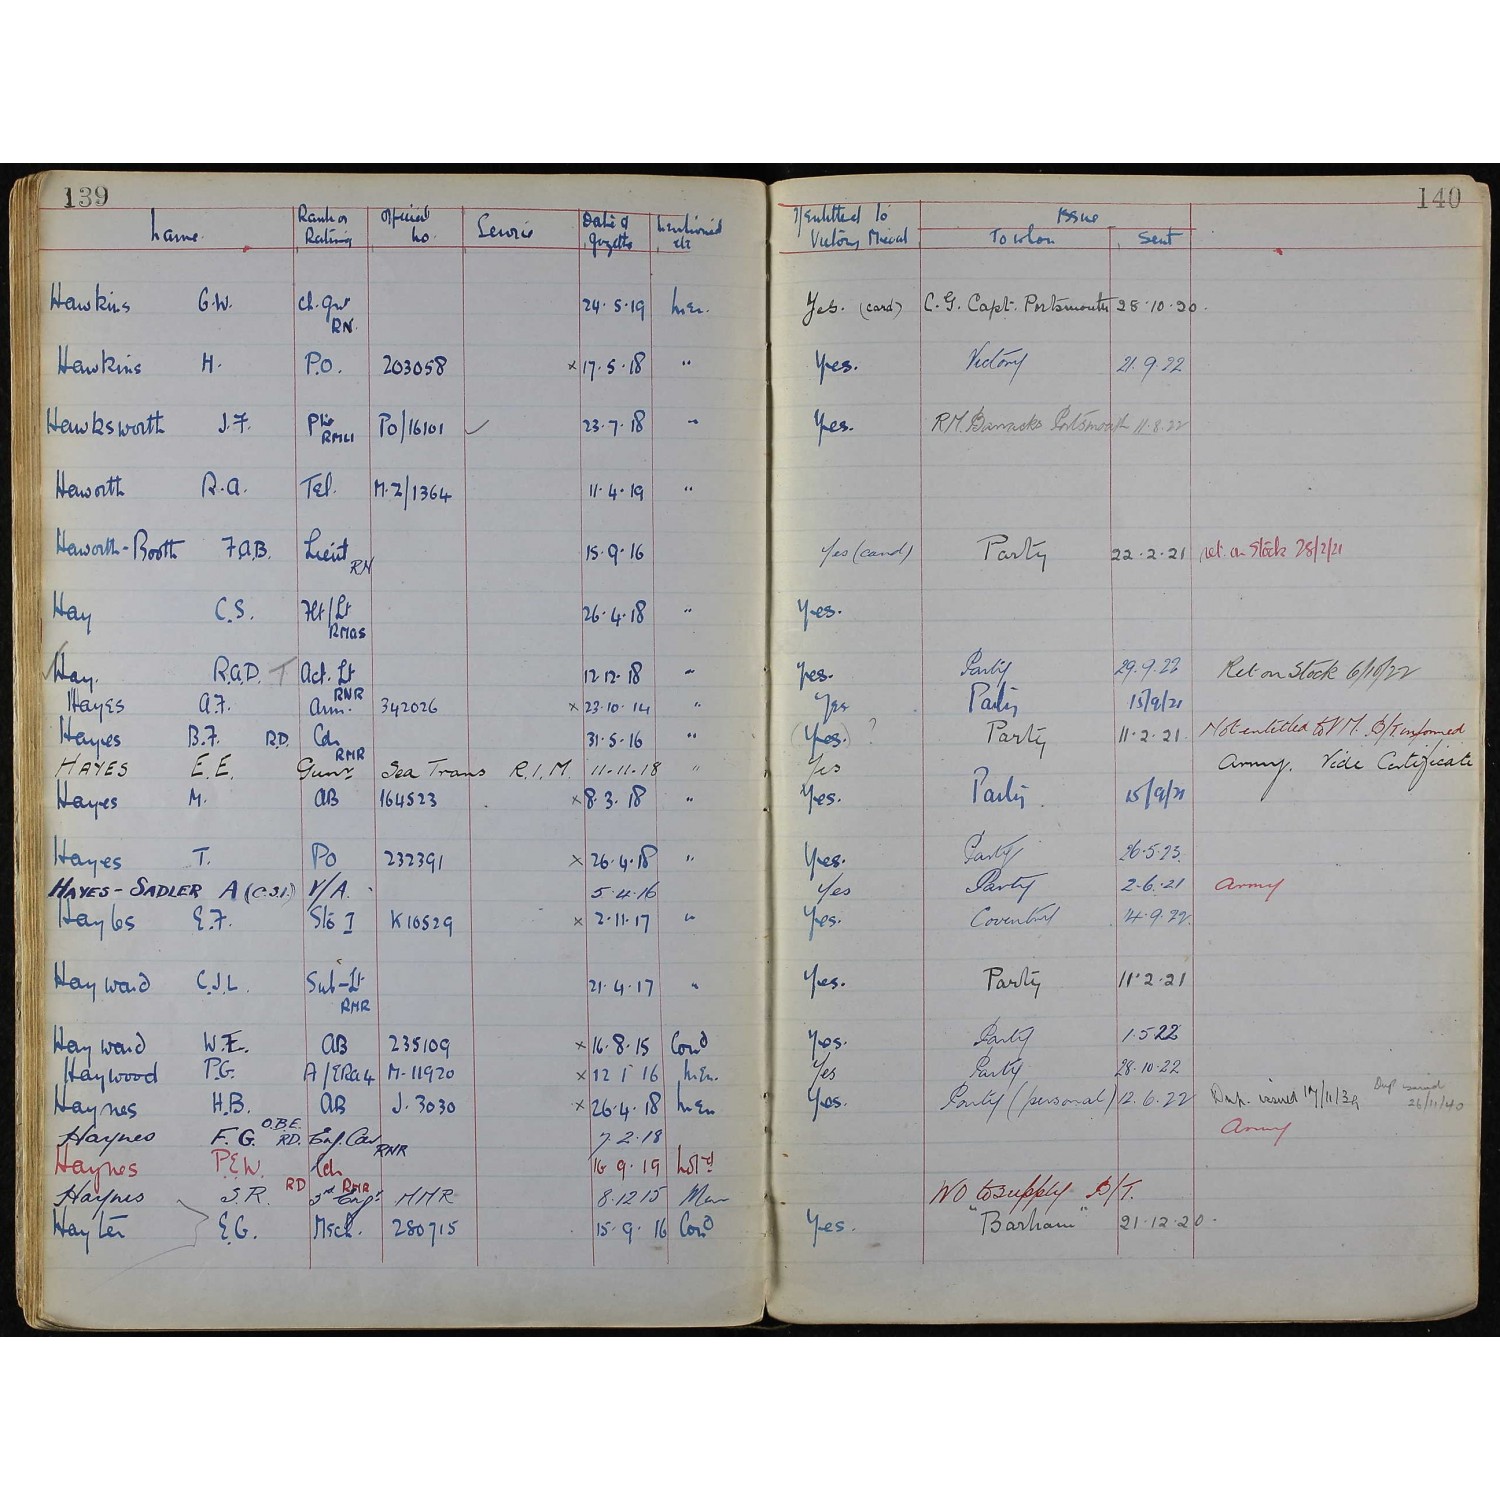 139
Name Rank or Rating Official No. Service Date of Gazette Mentioned etc
Hawkins G.W. Ch. Gnr RN. 24.5.19 Men.
Hawkins H. P.O. 203058 x 17.5.18 "
Hawksworth J.F. Pte RMLI Po/16101 ✓ 23.7.18 "
Haworth R.A. Tel. M.Z/1364 11.4.19 "
Haworth-Booth F.A.B. Lieut RN 15.9.16
Hay C.S. Flt/Lt RNAS 26.4.18 "
Hay. R.A.D. T Act. Lt RNR 12.12.18 "
Hayes A.F. Arm. 342026 x 23.10.14 "
Hayes B.F. R.D. Cdr RNR 31.5.16 "
HAYES E.E. Gunr Sea Trans R.I.M. 11.11.18 "
Hayes M. AB 164523 x 8.3.18 "
Hayes T. PO 232391 x 26.4.18 "
HAYES-SADLER A (C.S.I.) V/A. 5.4.16
Hayles E.F. Sto I K10529 x 2.11.17 "
Hayward C.J.L. Sub-Lt RNR 21.4.17 "
Hayward W.E. AB 235109 x 16.8.15 Com'd
Haywood P.G. A/ERA4 M.11920 x 12 1 16 Men.
Haynes H.B. AB J.3030 x 26.4.18 Men
Haynes F.G. O.B.E. RD. Eng. Cdr RNR 7.2.18
Haynes P.E.W. RD Cdr RNR 16 9 19
Haynes S.R. 3rd Engr MMR 8.12.15 Men
Hayter E.G. Mech. 280715 15.9.16 Com'd
140
If Entitled to Victory Medal Issue To whom Sent
Yes. (card) C.G. Capt. Portsmouth 28.10.20.
Yes. Victory 21.9.22
Yes. R.M. Barracks Portsmouth 11.8.22
Yes (card) Party 22.2.21 ret. on Stock 28/2/21
Yes.
Yes. Party 29.9.22 Ret on Stock 6/10/22
Yes Party 15/9/21
(Yes.) ? Party 11.2.21. Not entitled to V.M. B/T informed
Yes Army. Vide Certificate
Yes. Party. 15/9/21
Yes. Party 26.5.23.
Yes Party 2.6.21 Army
Yes. Coventry 14.9.22.
Yes. Party 11.2.21
Yes. Party 1.5.22
Yes Party 28.10.22
Yes. Party (personal) 12.6.22 Dup. issued 17/11/38 Dup issued 26/11/40
Army
WO to supply B/T.
Yes. "Barham" 21.12.20.